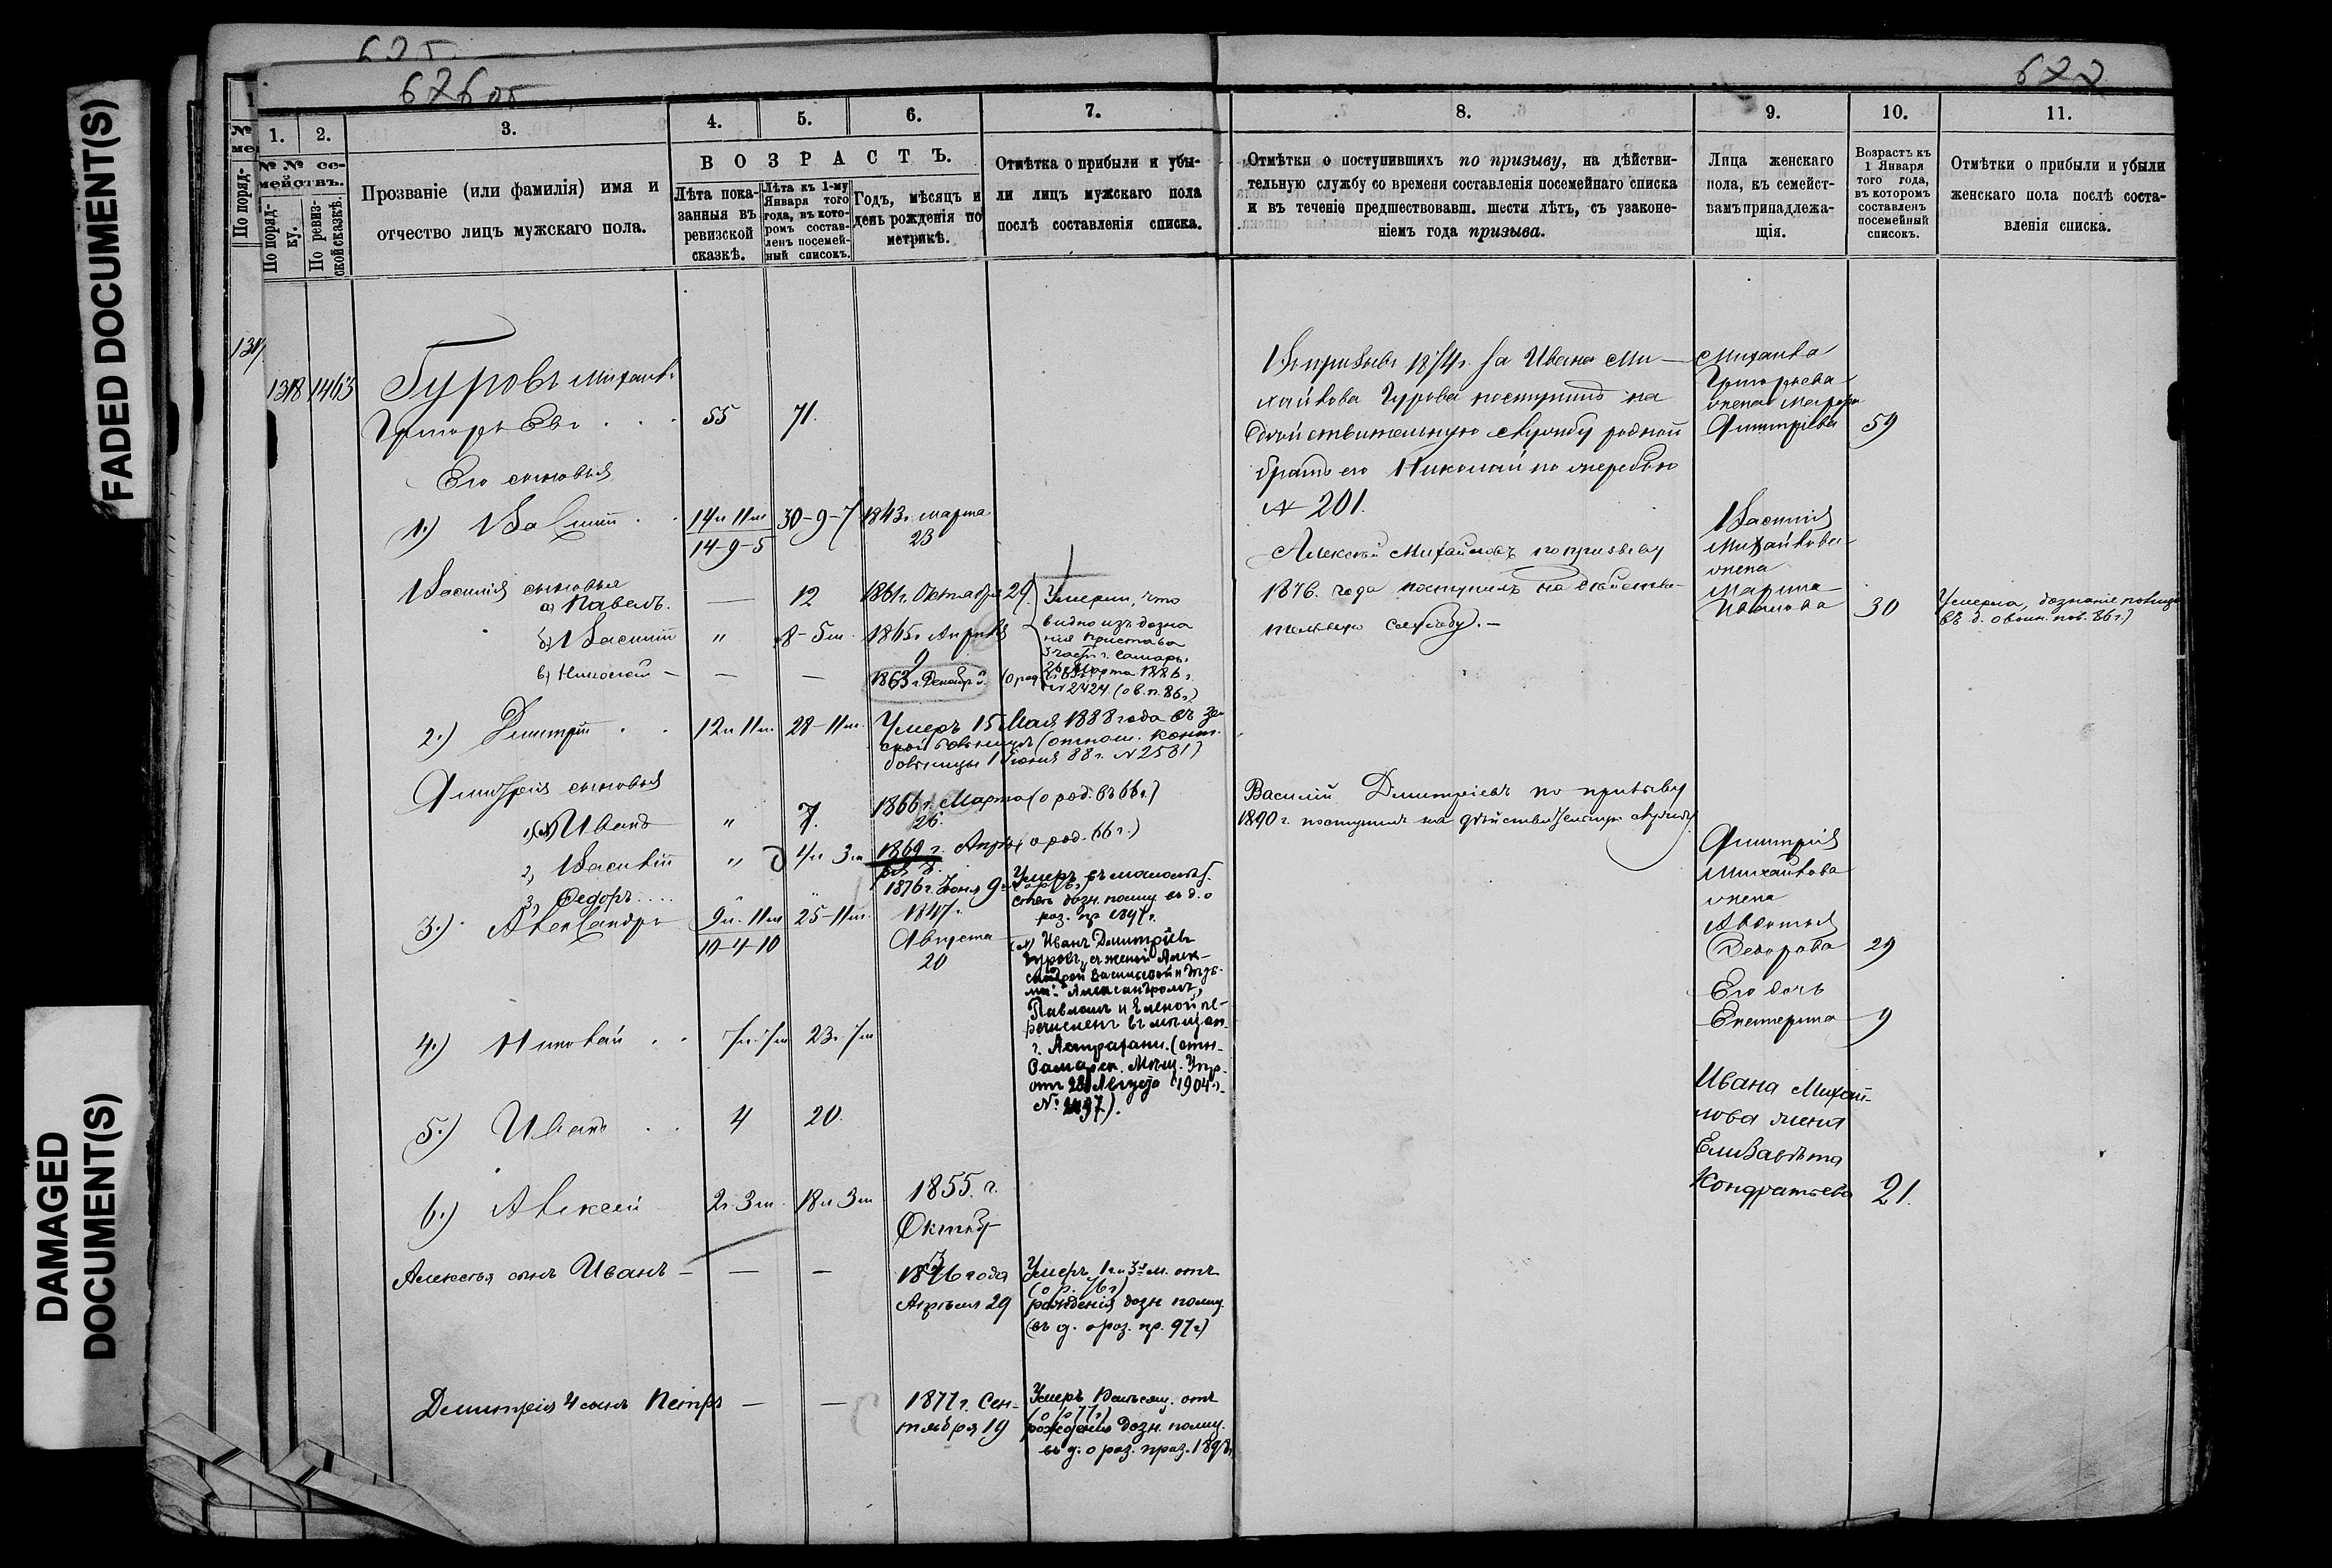 FADED DOCUMENT(S)
DAMAGED
DOCUMENT(S)
625
676 об
677
1. 2. 3. 4. 5. 6. 7. 8. 9. 10. 11.
№ № се-
мействъ.
По поряд-
ку.
По ревиз-
ской сказкѣ.
Прозваніе (или фамилія) имя и
отчество лицъ мужскаго пола.
В О З Р А С Т Ъ.
Лѣта пока-
занныя въ
ревизской
сказкѣ.
Лѣта къ 1-му
Января того
года, въ кото-
ромъ состав-
ленъ посемей-
ный списокъ.
Годъ, мѣсяцъ и
день рожденія по
метрикѣ.
Отмѣтка о прибыли и убы-
ли лицъ мужскаго пола
послѣ составленія списка.
Отмѣтки о поступившихъ по призыву, на дѣйстви-
тельную службу со времени составленія посемейнаго списка
и въ теченіе предшествовавш. шести лѣтъ, съ узаконе-
ніемъ года призыва.
Лица женскаго
пола, къ семейст-
вамъ принадлежа-
щія.
Возрастъ къ
1 Января
того года,
въ которомъ
составленъ
посемейный
списокъ.
Отмѣтки о прибыли и убыли
женскаго пола послѣ соста-
вленія списка.
1317
1318 1463 Гуровъ Михаилъ
Григорьевъ 55 71.
Его сыновья
1.) Василій 14 л 11 м 30-9-7 1843 г. марта
14-9-5 23
Василія сыновья
а) Павелъ. — 12 1861 г. Октября 29.
б) Василій " 8-5 м. 1865 г. Апрѣля
9
в) Николай — — — 1863 г. Декабр 5.
Умерли, что
видно изъ дозна
нія пристава
3 части г. Самары
26 Марта 1886 г.
№ 2424. (о в. п. 86 г.)
2.) Дмитрій 12 л 11 м 28-11 м. Умеръ 15 Мая 1888 года въ зем
ской больницѣ (отнош. конт.
больницы 1 Іюня 88 г. № 2581)
Дмитрія сыновья
1) Иванъ " 7. 1866 г. Марта (о род. въ 66 г.)
26.
2) Василій " 4 л 3 м 1869 г. Апрѣ
3) Ѳедоръ.... 1876 г. Іюня 9
Умеръ въ малолѣт
ствѣ дозн. полиц. въ д. о
раз. пр 1897 г.
3.) Александръ 9 л. 11 м 25-11 м. 1847 г.
10-4-10 Августа
20
Иванъ Дмитріевъ
Гуровъ, съ женой Алек-
сандрой Васильевой и дѣть-
ми: Александромъ,
Павломъ и Еленой пе-
речисленъ въ мѣщан.
г. Астрахани. (отн.
Самарск. Мѣщ. Упр.
отъ 28 Августа 1904 г.
4.) Николай 7 л. 7 м 23. 7 м
5.) Иванъ 4 20.
6.) Алексѣй 2 г. 3 м. 18 л 3 м 1855. г.
Октябр
3
Алексѣя сынъ Иванъ — — — 1876 года
Апрѣля 29
Умеръ 1 г. 3 м. отъ
(о р. 76 г.)
рожденія дозн. полиц.
(въ д. о раз. пр. 97 г.)
Димитрія 4 сынъ Петръ — — 1877 г. Сен-
тября 19
(о р. 77 г.)
рожденія дозн. полиц.
въ д. о раз. праз. 1898 г.
Въ призывъ 1874 г. за Ивана Ми-
хайлова Гурова поступилъ на
дѣйствительную службу родной
братъ его Николай по жеребью
№ 201.
Алексѣй Михайловъ по призыву
1876. года поступилъ на дѣйстви-
тельную службу. —
Василій Димитріевъ по призыву
1890 г. поступилъ на дѣйствительную службу.
Михаила
Григорьева
жена Марфа
Дмитріева 59
Василія
Михайлова
жена
Марина
Иванова 30
Умерла, дознаніе полиціи
въ д. о воин. пов. 86 г.)
Дмитрія
Михайлова
жена
Авдотья
Ѳедорова 29
Его дочь
Екатерина 9
Ивана Михай-
лова жена
Елизавѣта
Кондратьева 21.